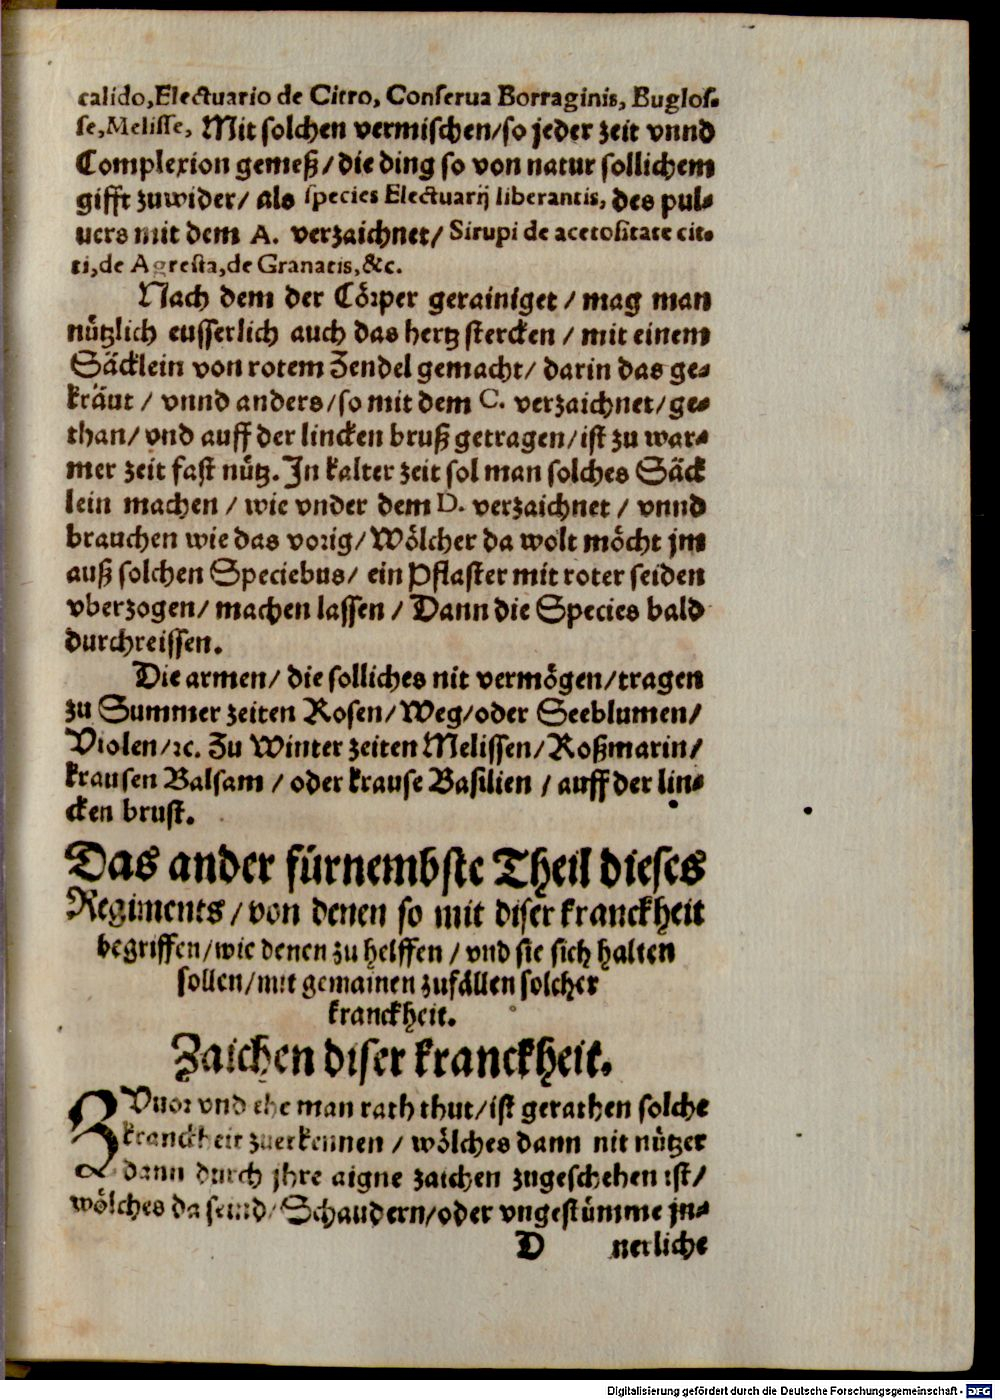 calido, Electuario de Citro, Conserua Borraginis, Buglos-
se, Melisse, Mit solchen vermischen/ so jeder zeit vnnd
Complexion gemeß/ die ding so von natur sollichem
gifft zuwider/ als species Electuarij liberantis, des pul-
uers mit dem A. verzaichnet/ Sirupi de acetositate cit-
ri, de Agresta, de Granatis, &c.
Nach dem der Cörper gerainiget/ mag man
nützlich eusserlich auch das hertz stercken/ mit einem
Säcklein von rotem Zendel gemacht/ darin das ge-
kräut/ vnnd anders/ so mit dem C. verzaichnet/ ge-
than/ vnd auff der lincken bruß getragen/ ist zu war-
mer zeit fast nütz. In kalter zeit sol man solches Säck
lein machen/ wie vnder dem D. verzaichnet/ vnnd
brauchen wie das vorig/ Wölcher da wolt möcht jm
auß solchen Speciebus/ ein Pflaster mit roter seiden
vberzogen/ machen lassen/ Dann die Species bald
durchreissen.
Die armen/ die solliches nit vermögen/ tragen
zu Summer zeiten Rosen/ Weg/ oder Seeblumen/
Violen/ ꝛc. Zu Winter zeiten Melissen/ Roßmarin/
krausen Balsam/ oder krause Basilien/ auff der lin-
cken brust.
Das ander fürnembste Theil dieses
Regiments/ von denen so mit diser kranckheit
begriffen/ wie denen zu helffen/ vnd sie sich halten
sollen/ mit gemainen zufällen solcher
kranckheit.
Zaichen diser kranckheit.
ZVuor vnd ehe man rath thut/ ist gerathen solche
kranckheit zuerkennen/ wölches dann nit nützer
dann durch jhre aigne zaichen zugeschehen ist/
wölches da seind/ Schaudern/ oder vngestümme jn-
D nerliche
Digitalisierung gefördert durch die Deutsche Forschungsgemeinschaft - DFG